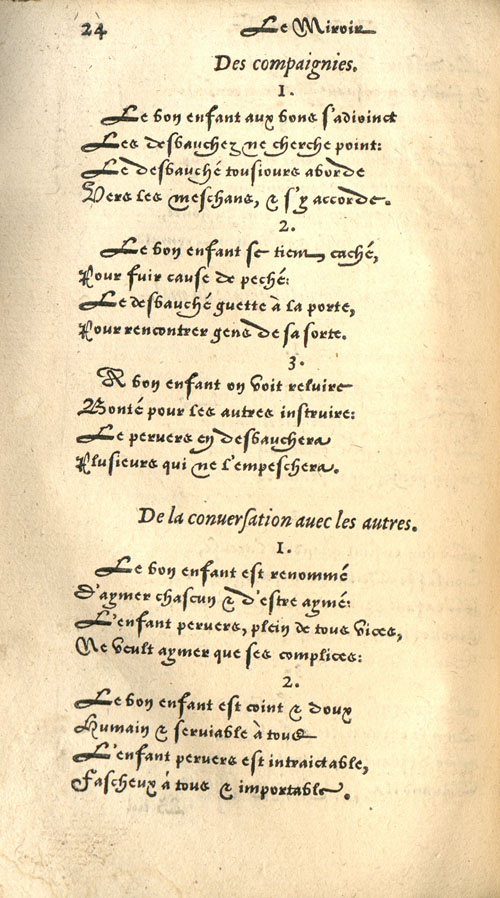 24 Le Miroir
Des compaignies.
1.
Le bon enfant aux bons s'adioinct
Les desbauchez ne cherche point:
Le desbauché tousiours aborde
Vers les meschans, & s'y accorde.
2.
Le bon enfant se tient caché,
Pour fuir cause de peché:
Le desbauché guette à la porte,
Pour rencontrer gens de sa sorte.
3.
A bon enfant on voit reluire
Bonté pour les autres instruire:
Le peruers en desbauchera
Plusieurs qui ne l'empeschera.
De la conuersation auec les autres.
1.
Le bon enfant est renommé
D'aymer chascun & d'estre aymé:
L'enfant peruers, plein de tous vices,
Ne veult aymer que ses complices:
2.
Le bon enfant est coint & doux
Humain & seruiable à tous
L'enfant peruers est intraictable,
Fascheux á tous & importable.